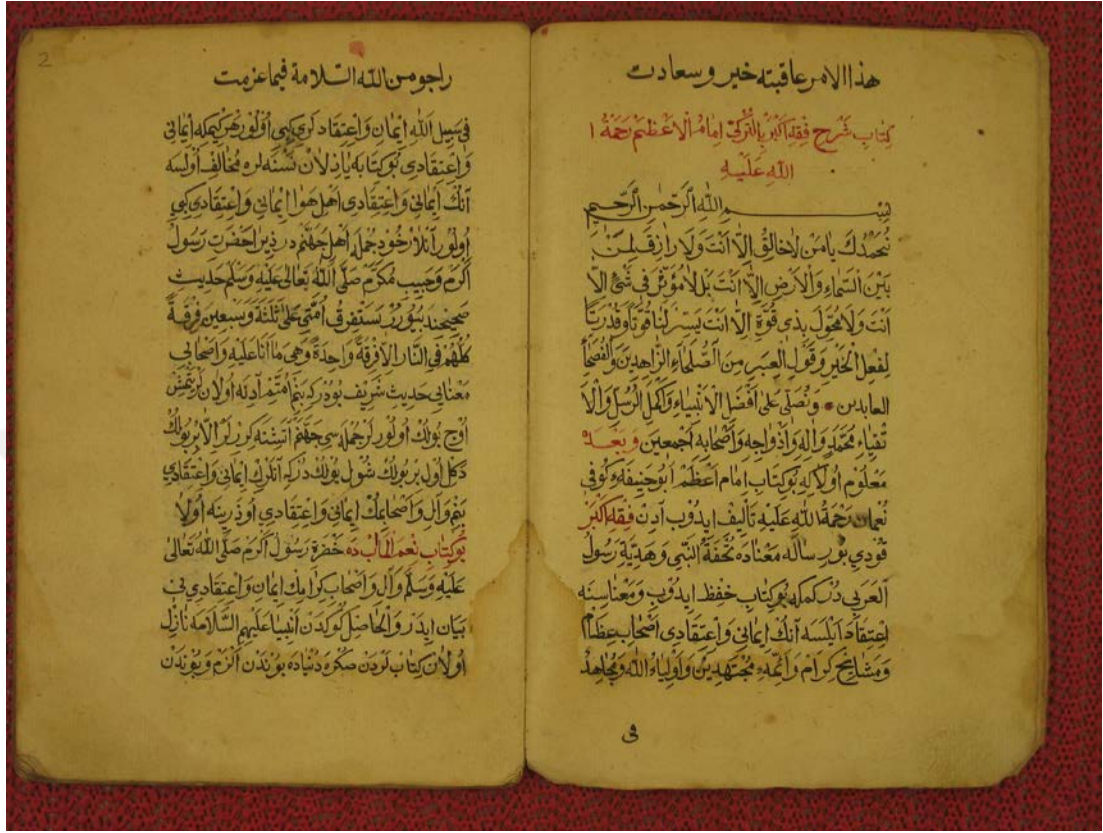 هذا الامر عاقبته خير وسعادت
كِتَاب شَرْحِ فِقْهِ اَكْبَرْ بِالتُّرْكِيِّ اِمَامُ الْاَعْظَمْ رَحْمَةُ ا
اللّٰهِ عَلَيْهِ
بِسْــمِ اللّٰهِ الرَّحْمٰنِ الرَّحِيمِ
نَحْمَدُكَ يَا مَنْ لَاخَالِقُ اِلَّا اَنْتَ وَلَا رَازِقَ لِمَنْ
بَيْنَ السَّمَاءِ وَالْاَرْضِ اِلَّا اَنْتَ بَلْ لَامُؤَثِّرَ فِى شَىْءٍ اِلَّا
اَنْتَ وَلَا مُحَوِّلَ بِذِى قُوَّةٍ اِلَّا اَنْتَ يَسِّرْ لَنَا قُوَّتًا وَقُدْرَتًا
لِفِعْلِ الْخَيْرِ وَقَوْلِ مِنَ الصُّلَحَاءِ الزَّاهِدِينَ وَالْفُصَحَا
العابدين وَنُصَلِّى عَلٰى اَفْضَلِ الْاَنْبِيَاءِ وَاَكْمَلِ الرُّسُلِ وَالْاَ
تْقِيَاءِ مُحَمَّدٍ وَاٰلِهِ وَاَزْوَاجِهِ وَاَصْحَابِهِ اَجْمَعِينَ وَبَعْدَهُ
مَعْلُومْ اُولَاكِه بُوكِتَابِ اِمَامِ اَعْظَمْ اَبُو حَنِيفَه ءِ كُوفِى
نُعْمَان رَحْمَةُ اللّٰهِ عَلَيْهِ تَأْلِيفْ اِيدُوبْ اَدِنْ فِقْهِ اَكْبَرْ
قُودِى بُو رِسَالَه مَعْنَادَه تُحْفَةُ النَّبِى وَهَدِيَّةِ رَسُولُ
الْعَرَبِى دُرْ كِمْكِه بُوكِتَابِ حِفْظْ اِيدُوبْ وَمَعْنَاسِنَه
اِعْتِقَادْ اَيْلَسَه اَنِكْ اِيمَانِى وَاِعْتِقَادِى اَصْحَابِ عِظَامْ
وَمَشَايِخِ كِرَامْ وَاَئِمَّهءِ مُجْتَهِدِينْ وَاَوْلِيَاءُ اللّٰهِ وَمُجَاهِدْ
فى
راجو من اللّه السّلامة فيما عزمت
فِى سَبِيلِ اللّٰهِ اِيمَانْ وَاِعْتِقَادْلَرِى كِبِى اُولُورْ هَرْ كِيمْكِه اِيمَانِى
وَاِعْتِقَادِى بُوكِتَابَه يَازِلَانْ نَسْنَه لَرَه مُخَالِفْ اُولْسَه
اَنِكْ اِيمَانِى وَاِعْتِقَادِى اَهْلِ هَوَا اِيمَانِى وَاِعْتِقَادِى كِبِى
اُولُورْ اَنْلَارْ خُودْ جُمْلَه اَهْلِ جَهَنَّمْ دِرْ زِيرَا حَضْرَتِ رَسُولُ
اَكْرَمْ وَحَبِيبِ مُكَرَّمْ صَلَّى اللّٰهُ تَعَالٰى عَلَيْهِ وَسَلَّمْ حَدِيثِ
صَحِيحِنْدَ بُيُورُرْ سَتَفْرِقُ اُمَّتِى عَلٰى ثَلٰثَةَ وَسَبْعِينَ فِرْقَةً
كُلُّهُمْ فِى النَّارِ اِلَّا فِرْقَةً وَاحِدَةً وَهِىَ مَا اَنَا عَلَيْهِ وَاَصْحَابِى
مَعْنَاىِ حَدِيثِ شَرِيفْ بُودُرْكِه بَنِمْ اُمَّتِمْ اَدِنَه اُولَانْلَرْ يَتْمِشْ
اُوچْ بُولُكْ اُولُورْلَرْ جُمْلَه سِى جَهَنَّمْ اَتَشِنَه كِرَرْلَرْ اِلَّا بِرْ بُولُكْ
دَكِلْ اُولْ بِرْ بُولُكْ شُولْ بُولُكْ دُرْكِه اَنْلَرِكْ اِيمَانِى وَاِعْتِقَادِى
بَنِمْ وَاٰلْ وَاَصْحَابِمِكْ اِيمَانِى وَاِعْتِقَادِى اُوذَرِينَه اُولَا
بُوكِتَابِ دَه حَضْرَةِ رَسُولِ اَكْرَمْ صَلَّى اللّٰهُ تَعَالٰى
عَلَيْهِ وَسَلَّمْ وَاٰلْ وَاَصْحَابِ كِرَامِكْ اِيمَانْ وَاِعْتِقَادِى نِى
بَيَانْ اِيدَرْ وَالْحَاصِلْ كُوكْدَنْ اَنْبِيَا عَلَيْهِمُ السَّلَامَه نَازِلْ
اُولَانْ كِتَابْلَرْدَنْ صُكْرَه دُنْيَادَه بُونْدَنْ اَلْزَمْ وَبُونْدَنْ